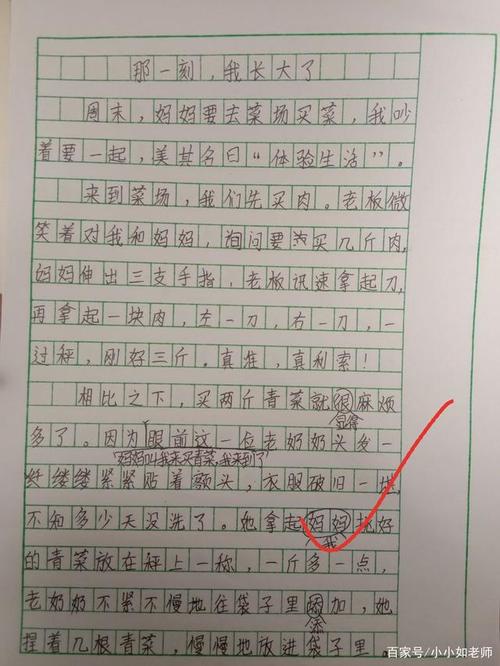 那一刻，我长大了
周末，妈妈要去菜场买菜，我吵
着要一起，美其名曰“体验生活”。
来到菜场，我们先买肉。老板微
笑着对我和妈妈，询问要买几斤肉，
妈妈伸出三支手指，老板讯速拿起刀，
再拿起一块肉，左一刀，右一刀，一
过秤，刚好三斤。真准，真利索！
相比之下，买两斤青菜就很麻烦
显得
多了。因为眼前这一位老奶奶头发一
妈妈叫我来买青菜，我来到了
缕缕紧紧贴着额头，衣服破旧一块，
不知多少天没洗了。她拿起妈妈挑好
我
的青菜放在秤上一称，一斤多一点，
老奶奶不紧不慢地往袋子里加，她
添
捏着几根青菜，慢慢地放进袋子里。
百家号/小小如老师